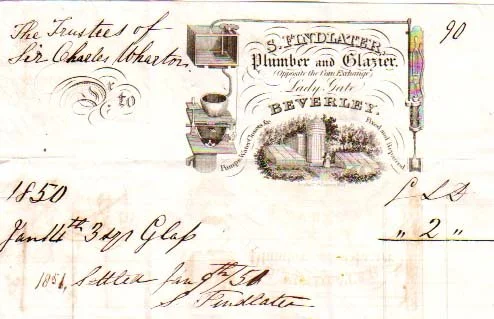 The Trustees of
Sir Charles Wharton
Dr to
90
S. FINDLATER,
Plumber and Glazier.
(Opposite the Corn Exchange)
Lady Gate
BEVERLEY.
Pumps, Water Closets, &c. Fixed and Repaired
1850 £ S D
Jan 14th 3 sqr Glass " 2 "
1851, Settled Jan 9th/51
S. Findlater